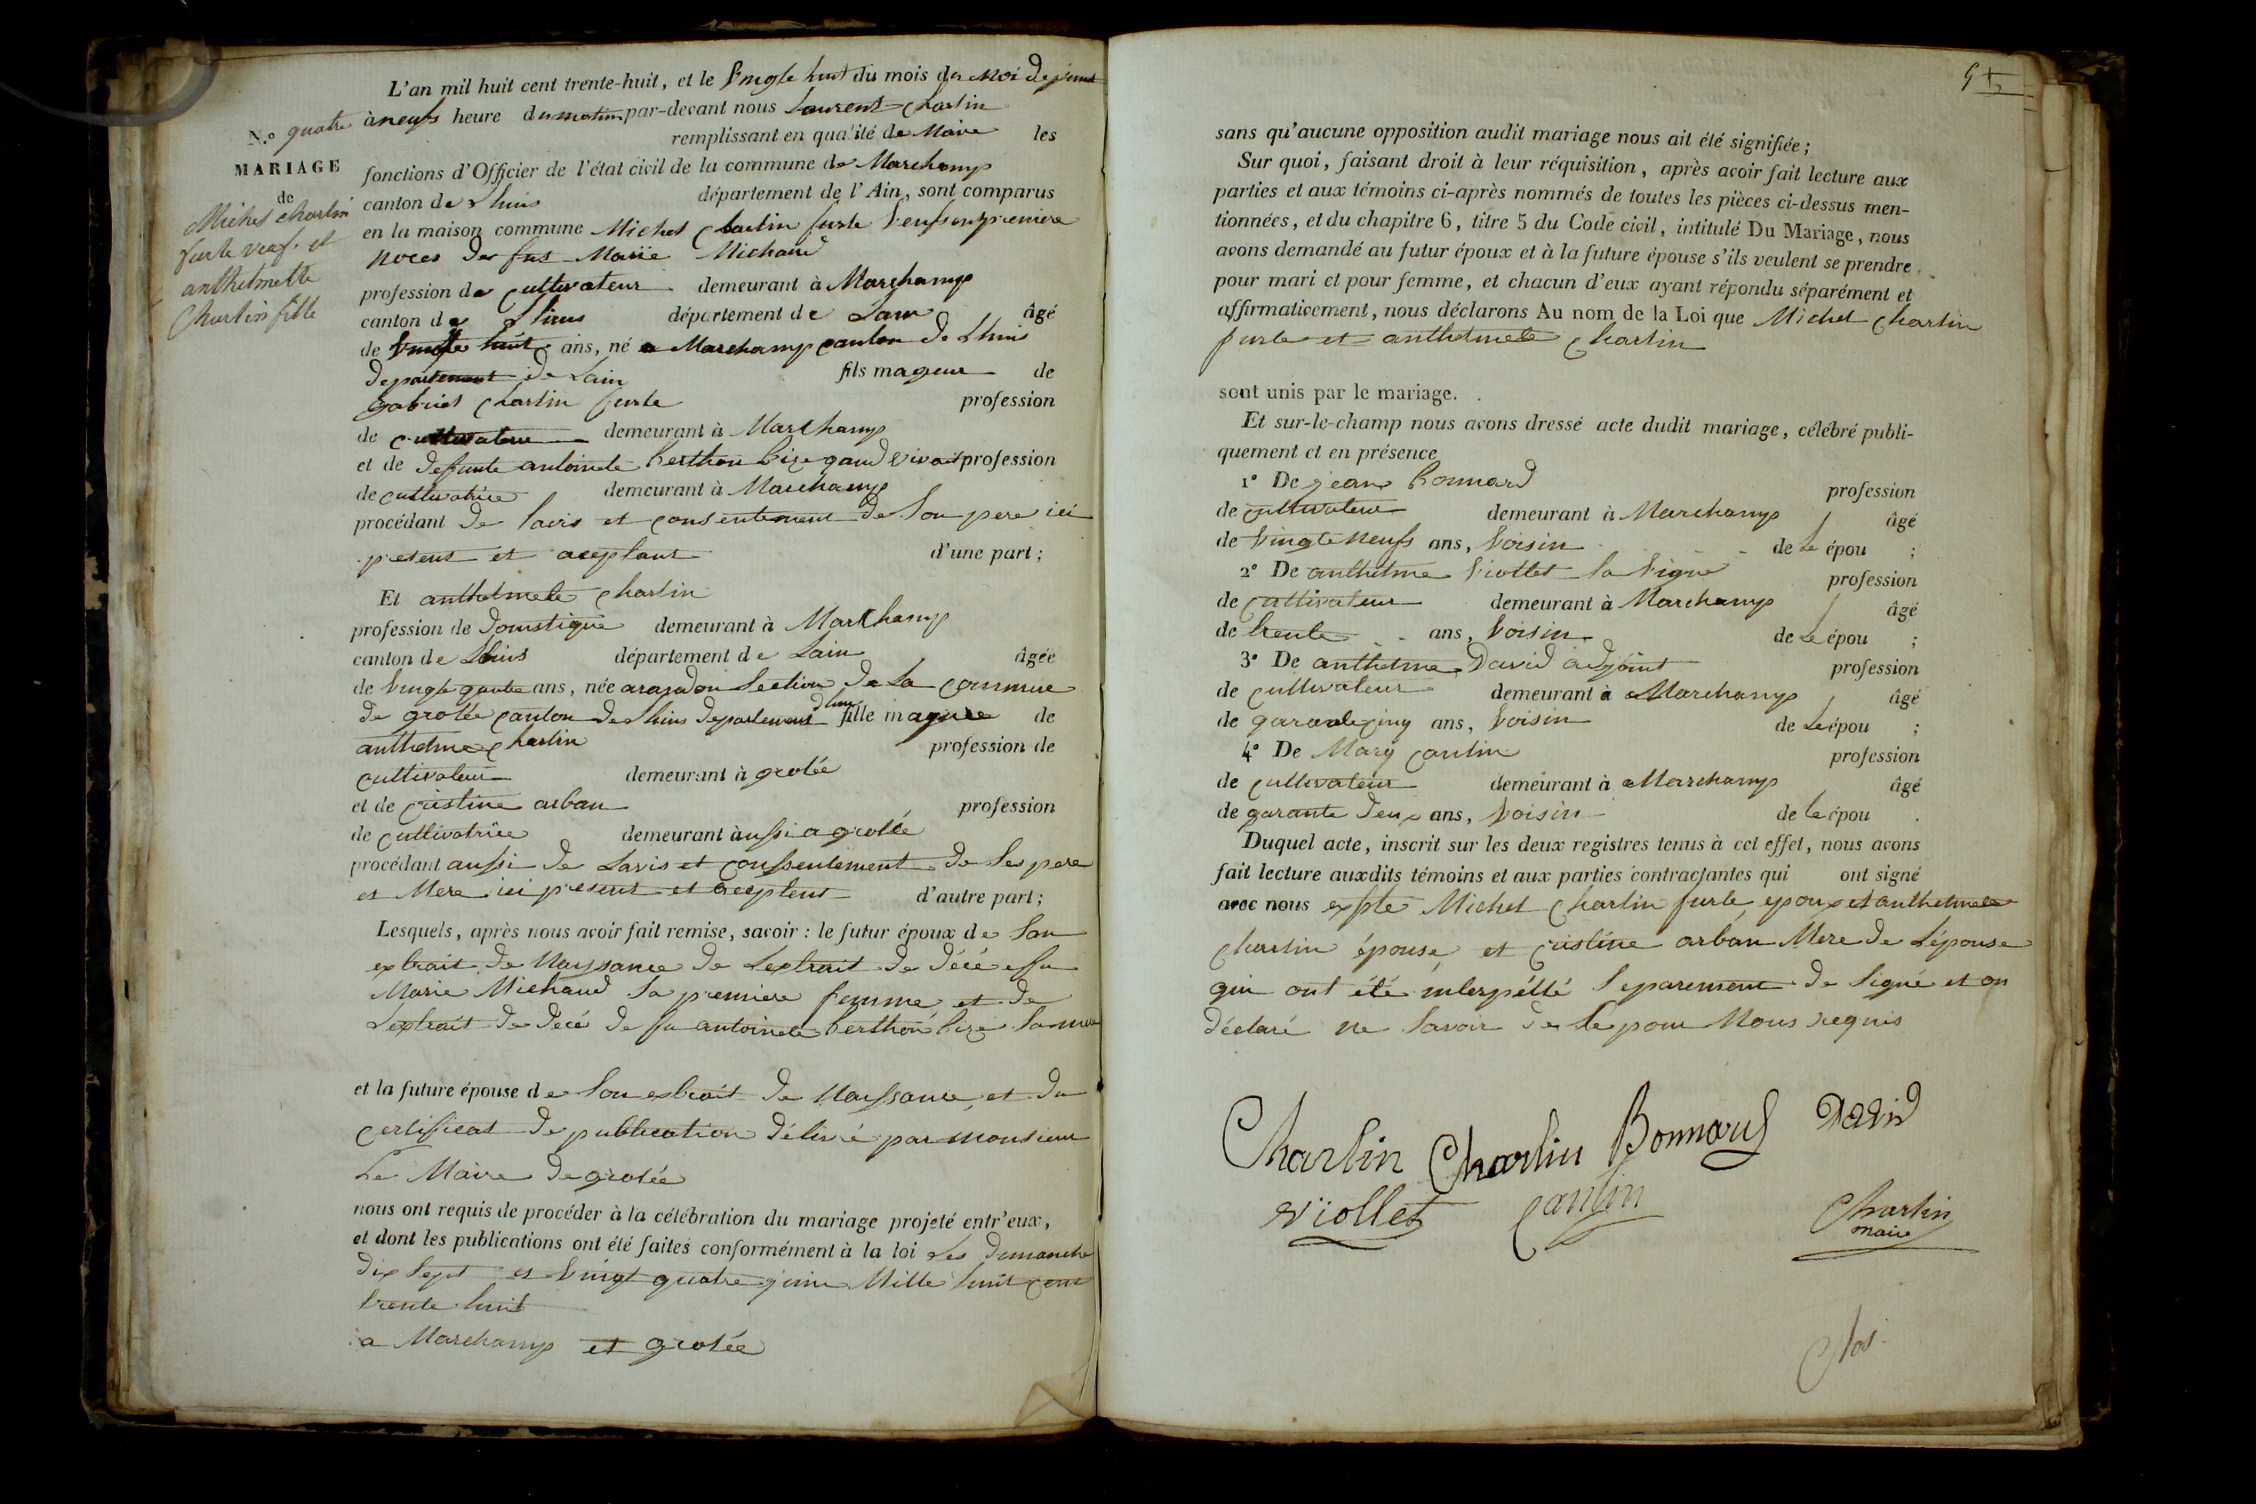 L'an mil huit cent trente-huit, et le Vingte huit du mois de Moi de juint
N.o quatre
à neufs heure du matin par-devant nous Laurent Charlin
remplissant en qualité de Maire les
MARIAGE
de
Michel Charlin
furle veuf. et
anthelmette
Charlin fille
fonctions d'Officier de l'état civil de la commune de Marchamp
canton de Lhuis département de l'Ain, sont comparus
en la maison commune Michel Charlin furle Veuf en premiere
noces de fus Marie Michaud
profession de Cultivateur demeurant à Marchamp
canton de Lhuis département de Lain âgé
de Vingte huit ans, né a Marchamp canton de Lhuis
departement de Lain fils mageur de
gabriel Charlin furle profession
de Cultivateur demeurant à Marchamp
et de defunte antoinete Berthon Bize gaud vivait profession
de cultivatrice demeurant à Marchamp
procédant de lavis et consentement de Son pere ici
present et aceptant d'une part;
Et anthelmete Charlin
profession de Domstique demeurant à Marchamp
canton de Lhuis département de Lain âgée
de Vingte quatre ans, née a Section de La Commune
de grolée canton de Lhuis departement d lain fille magure de
anthelme Charlin profession de
Cultivateur demeurant à grolée
et de Cristine arban profession
de Cultivatrice demeurant à ussi a grolée
procédant aussi de Lavis et Conssentement de Ses pere
et Mere ici present et aceptent d'autre part;
Lesquels, après nous avoir fait remise, savoir: le futur époux de Son
extrait de Nayssance de Lextrait de décé fu
Marie Michaud Sa premiere femme et de
Lextrait de decé de fu antoinete Berthon Bize Sa mere
et la future épouse de Son extrait de Nayssance, et du
Certificat de publication délivré par Monsieur
Le Maire de grolée
nous ont requis de procéder à la célébration du mariage projeté entr'eux,
et dont les publications ont été faites conformément à la loi Les dimanche
dix Sept et Vingt quatre juin Mille huit Cent
trente huit
a Marchamp et grolée
sans qu'aucune opposition audit mariage nous ait été signifiée;
Sur quoi, faisant droit à leur réquisition, après avoir fait lecture aux
parties et aux témoins ci-après nommés de toutes les pièces ci-dessus men-
tionnées, et du chapitre 6, titre 5 du Code civil, intitulé Du Mariage, nous
avons demandé au futur époux et à la future épouse s'ils veulent se prendre
pour mari et pour femme, et chacun d'eux ayant répondu séparément et
affirmativement, nous déclarons Au nom de la Loi que Michel Charlin
furle et anthelmete Charlin
sont unis par le mariage.
Et sur-le-champ nous avons dressé acte dudit mariage, célébré publi-
quement et en présence
1° De jean Bonnard profession
de cultivateur demeurant à Marchamp âgé
de Vingte neufs ans, Voisin de Le épou ;
2° De anthelme Viollet la Vigne profession
de Cultivateur demeurant à Marchamp âgé
de trente ans, Voisin de Le épou ;
3° De anthelme David adjoint profession
de Cultivateur demeurant à Marchamp âgé
de garante cinq ans, Voisin de Le épou ;
4° De Mary Cantin profession
de Cultivateur demeurant à Marchamp âgé
de garante deux ans, Voisin de le épou .
Duquel acte, inscrit sur les deux registres tenus à cet effet, nous avons
fait lecture auxdits témoins et aux parties contractantes qui ont signé
avec nous expte Michel Charlin furle, epoux et anthelmete
Charlin épouse, et Cristine arban Mere de Lépouse
qui ont été interpéllé Separement de Signé et on
déclaré ne Savoir de Le pour Nous requis
Charlin Charlin Bonnard David
Viollet Cantin
Charlin
maire